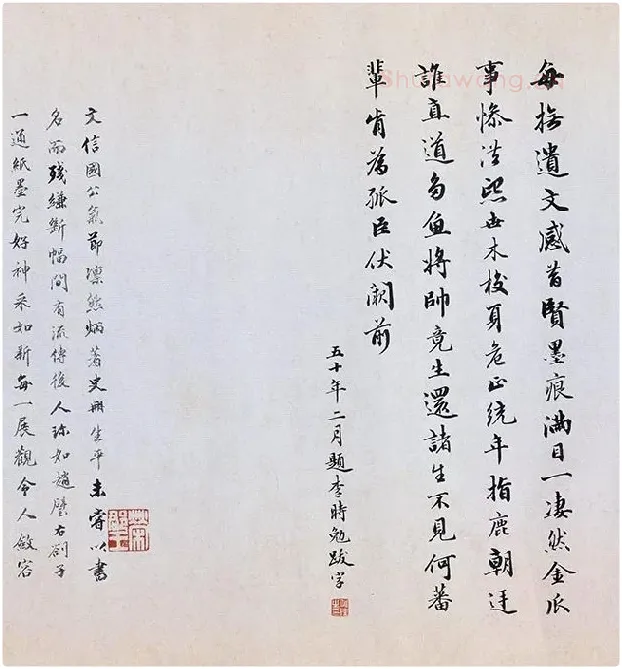 每披遺文感昔賢墨痕滿目一凄然金瓜
事慘洪熙世木校頁危正統年指鹿朝廷
誰直道多魚將帥竟生還諸生不見何蕃
輩肯為孤臣伏闕前
五十年二月題李時勉跋字
文信國公氣節凜然炳著史冊生平未嘗以書
名而殘縑斷幅間有流傳後人珍如趙璧右劄子
一通紙墨完好神采如新每一展觀令人斂容